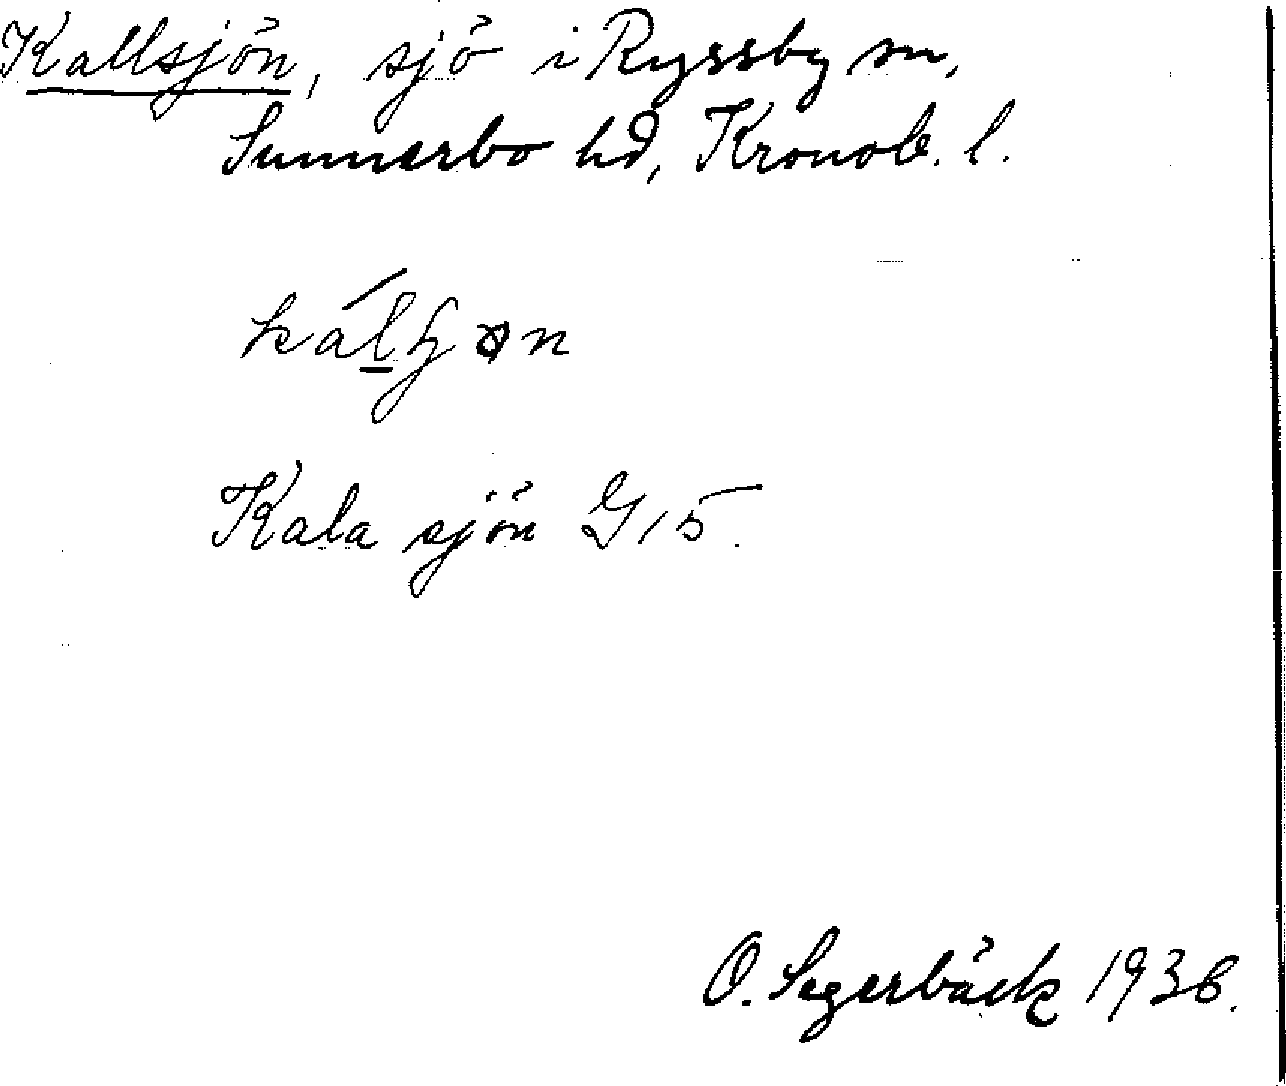 Kallsjön, sjö i Ryssby sn,
Sunnerbo hd, Kronob. l.
Kala sjön G15.
O. Segerbäck 1936.